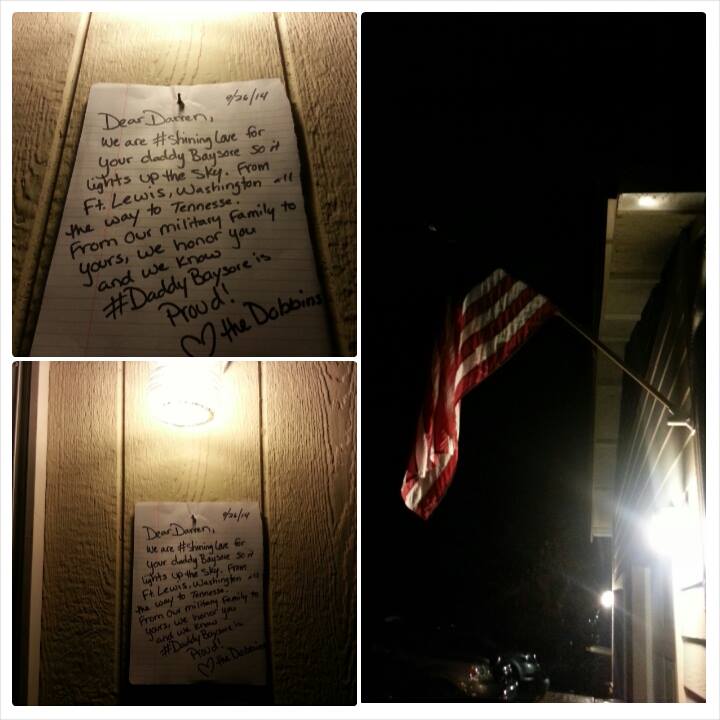 9/26/14
Dear Darren,
We are #Shining Love for
your daddy Baysore so it
lights up the sky. From
Ft. Lewis, Washington all
the way to Tennesse.
From Our military Family to
yours, we honor you
and we know
#Daddy Baysore is
Proud!
♡ the Dobbins
9/26/14
Dear Darren,
We are #Shining Love for
your daddy Baysore so it
lights up the sky. From
Ft. Lewis, Washington all
the way to Tennesse.
From Our military Family to
yours, we honor you
and we know
#Daddy Baysore is
Proud!
♡ the Dobbins